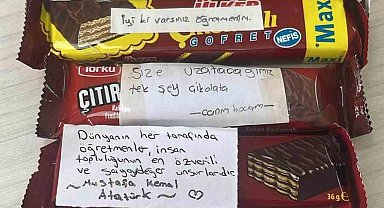 ÜLKER
İyi ki varsınız öğretmenim.
GOFRET
NEFİS
Maxi
Maxi
Torku
ÇITIR
Size uzatacağımız
tek şey çikolata
- canım hocam -
Dünyanın her tarafında
öğretmenler, insan
topluluğunun en özverili
ve saygıdeğer unsurlarıdır.
~ Mustafa Kemal
Atatürk ~
36 g e